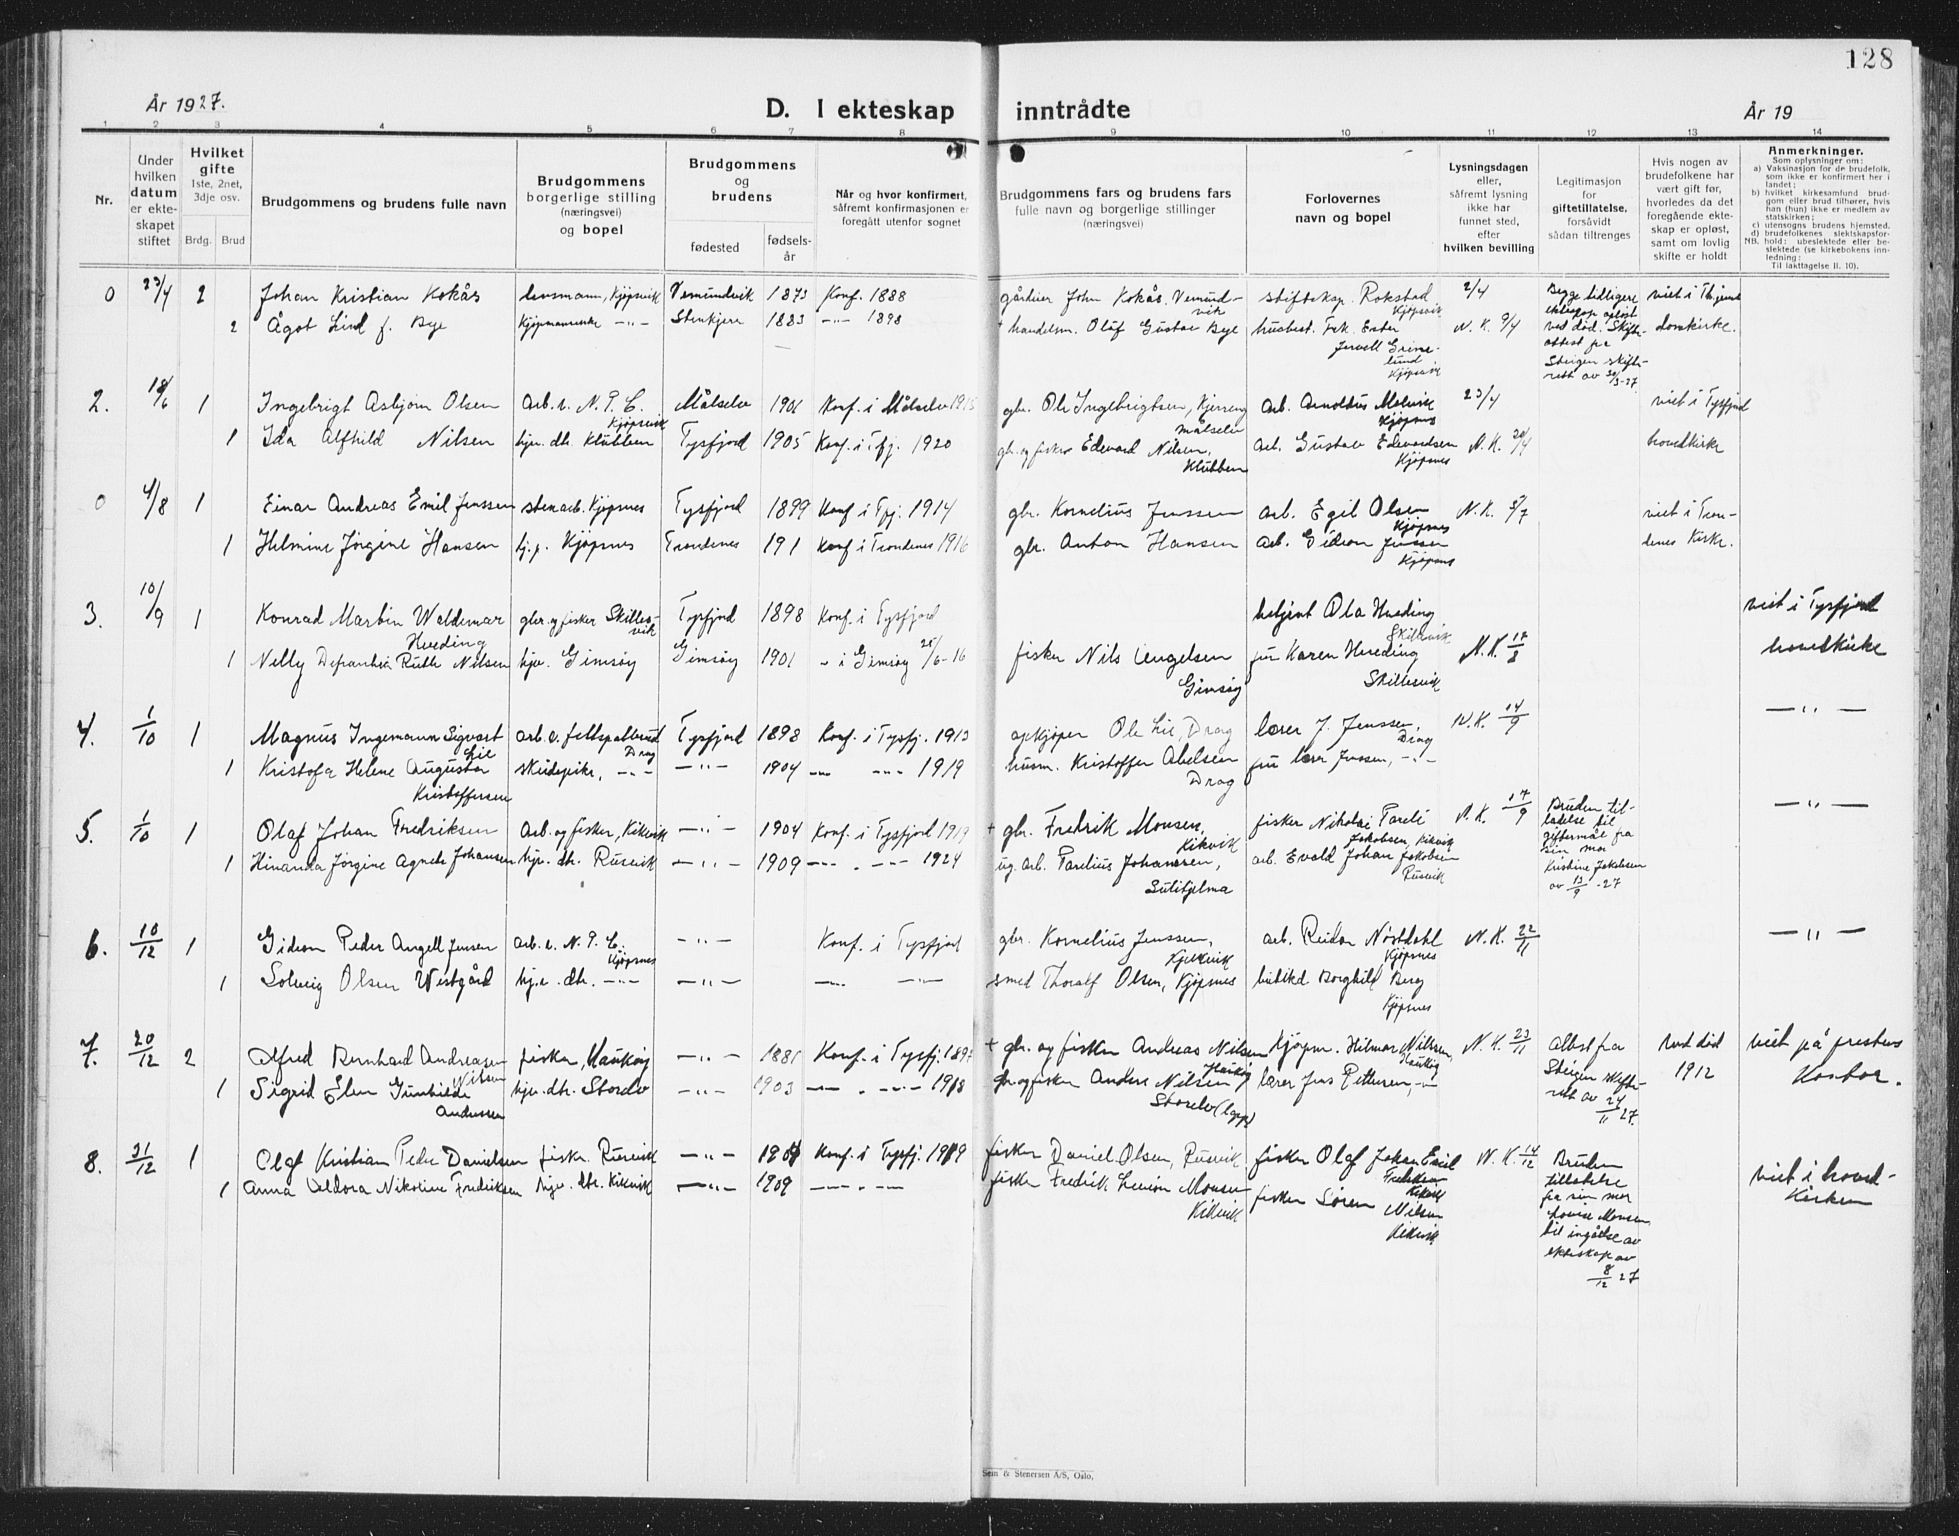 128
År 1927.
D. I ekteskap inntrådte
År 19
1 2 3 4 5 6 7 8 9 10 11 12 13 14
Nr.
Under
hvilken
datum
er ekte-
skapet
stiftet
Hvilket
gifte
1ste, 2net,
3dje osv.
Brdg. Brud
Brudgommens og brudens fulle navn
Brudgommens
borgerlige stilling
(næringsvei)
og bopel
Brudgommens
og
brudens
fødested
fødsels-
år
Når og hvor konfirmert,
såfremt konfirmasjonen er
foregått utenfor sognet
Brudgommens fars og brudens fars
fulle navn og borgerlige stillinger
(næringsvei)
Forlovernes
navn og bopel
Lysningsdagen
eller,
såfremt lysning
ikke har
funnet sted,
efter
hvilken bevilling
Legitimasjon
for
giftetillatelse,
forsåvidt
sådan tiltrenges
Hvis nogen av
brudefolkene har
vært gift før,
hvorledes da det
foregående ekte-
skap er opløst,
samt om lovlig
skifte er holdt
Anmerkninger.
Som oplysninger om:
a) Vaksinasjon for de brudefolk,
som ikke er konfirmert her i
landet;
b) hvilket kirkesamfund brud-
gom eller brud tilhører, hvis
han (hun) ikke er medlem av
statskirken;
c) utensogns brudens hjemsted.
d) brudefolkenes slektskapsfor-
NB. hold: ubeslektede eller be-
slektede (se kirkebokens inn-
ledning:
Til iakttagelse II. 10).
0 23/4 2 Johan Kristian Kokås lensmann, Kjøpsvik Vemundvik 1873 Konf. 1888 gårdeier John Kokås. Vemund-
vik stiftskap. Rokstad
Kjøpsvik 2/4 Begge tidligere
ekteskap opløst
ved død. Skifte-
attest fra
Steigen skifte-
rett av 30/3-27 viet i Thjems
domkirke.
2 Ågot Lind f. Bye Kjøpmannenke -"- Stenkjer 1883 -"- 1898 + handelsm. Oluf Gustav Bye husbest. Frk. Ester
Jervell Grime-
lund
Kjøpsvik N. K. 9/4
2. 18/6 1 Ingebrigt Asbjørn Olsen Arb. v. N. P. C.
Kjøpsvik Målselv 1901 Konf. i Målselv 1915 gbr. Ole Ingebrigtsen, Kjerreng
Målselv arb. Arnoldus Molvik
Kjøpsnes 23/4 viet i Tysfjord
hovedkirke
1 Ida Alfhild Nilsen hjv. dtr. Klubben Tysfjord 1905 Konf. i Tfj. 1920 gbr. og fisker Edevard Nilsen,
Klubben arb. Gustav Edevardsen
Kjøpsnes N. K. 20/4
0 4/8 1 Einar Andreas Emil Jenssen stenarb. Kjøpsnes Tysfjord 1899 Konf i Tfj. 1914 gbr. Kornelius Jenssen arb. Egil Olsen
Kjøpsnes N. K. 5/7 viet i Tron-
denes Kirke.
1 Helmine Jørgine Hansen hj.p. Kjøpsnes Trondenes 191 Konf i Trondenes 1916 gbr. Anton Hansen arb. Gideon Jenssen
Kjøpsnes
3. 10/9 1 Konrad Martin Waldemar
Hveding gbr. og fisker Skilles-
vik Tysfjord 1898 Konf. i Tysfjord betjent Ola Hveding
Skillevik viet i Tysfjord
hovedkirke
1 Nelly Ruth Nilsen hjv. Gimsøy Gimsøy 1901 " i Gimsøy 25/6-16 fisker Nils Engelsen
Gimsøy fru Karen Hveding
Skillesvik N. K. 17/8
4. 1/10 1 Magnus Ingemann Sigvart
Lie arb. v. feltspatbrud
Drag Tysfjord 1898 Konf. i Tysfj. 1913 opkjøper Ole Lie, Drag lærer J. Jenssen,
Drag N. K. 14/9 -"-
1 Kristofa Helene Augusta
Kristoffersen -"- -"- 1904 -"- -"- 1919 husm. Kristoffer Abelsen
Drag fru lærer Jenssen, -"-
5. 1/10 1 Olaf Johan Fredriksen Arb. og fisker, Kikvik -"- 1904 Konf. i Tysfjord 1919 + gbr. Fredrik Monsen,
Kikvik fisker Nikolai Pareli
Jakobsen, Kikvik N. K. 17/9 Bruden til-
latelse til
giftermål fra
sin mor
Kristine Jakobsen
av 13/9-27 -"-
1 Hinanda Jørgine Agnete Johansen hjv. dtr. Rusvik -"- 1909 -"- -"- 1924 ug. arb. Parelius Johansen,
Sulitjelma arb. Evald Johan Jakobsen
Rusvik
6. 10/12 1 Gideon Peder Angell Jensen arb. v. N. P. C.
Kjøpsnes -"- Konf. i Tysfjord gbr. Kornelius Jenssen,
Kjelkvik arb. Reidar Nøstdahl
Kjøpsnes N. K. 22/11 -"-
1 Solveig Olsen Westgård hj.v. dtr. -"- -"- -"- -"- smed Thoralf Olsen, Kjøpsnes Borghild Berg
Kjøpsnes
7. 20/12 2 Alfred Bernhard Andreasen
Nilsen fisker, Haukøy -"- 1881 Konf. i Tysfj. 1897 + gbr. og fisker Andreas Nilsen
Haukøy Kjøpm. Hilmar Nilssen,
Haukøy N. K. 23/11 Attest fra
Steigen skifte-
rett av 24/11 27. Ved død
1912 viet på prestens
Kontor.
1 Sigrid Elen Gunhilde
Andersen hjv. dtr. Storelv -"- 1903 -"- -"- 1918 gbr. og fisker Anders Nilsen
Storelv (lapp) lærer Jens Pettersen, -"-
8. 31/12 1 Olaf Kristian Peder Danielsen fisker. Rusvik -"- 1904 Konf. i Tysfj. 1919 fisker Daniel Olsen, Rusvik fisker Olaf Johan Emil
Fredriksen
Kikvik N. K. 14/12 Bruden
tillatelse
fra sin mor
Lovise Monsen
til ingåelse av
ekteskap av
8/12 27 viet i hoved-
Kirken
1 Anna Aldora Nikoline Fredriksen hjv. dtr. Kikvik -"- 1909 -"- -"- fisker Fredrik Monsen
Kikvik fisker Søren Nilsen
Kikvik
Sem & Stenersen A/S, Oslo.